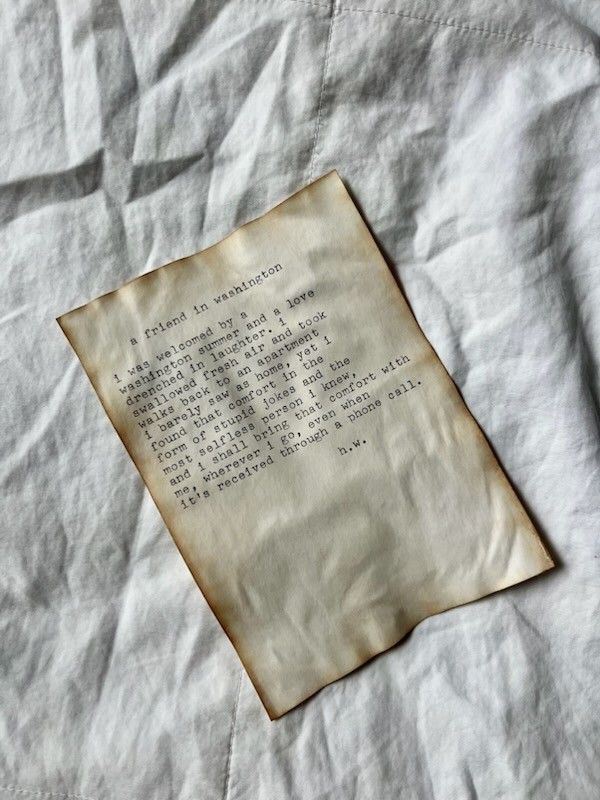 a friend in washington
i was welcomed by a
washington summer and a love
drenched in laughter. i
swallowed fresh air and took
walks back to an apartment
i barely saw as home, yet i
found that comfort in the
form of stupid jokes and the
most selfless person i knew,
and i shall bring that comfort with
me, wherever i go, even when
it's received through a phone call.
h.w.